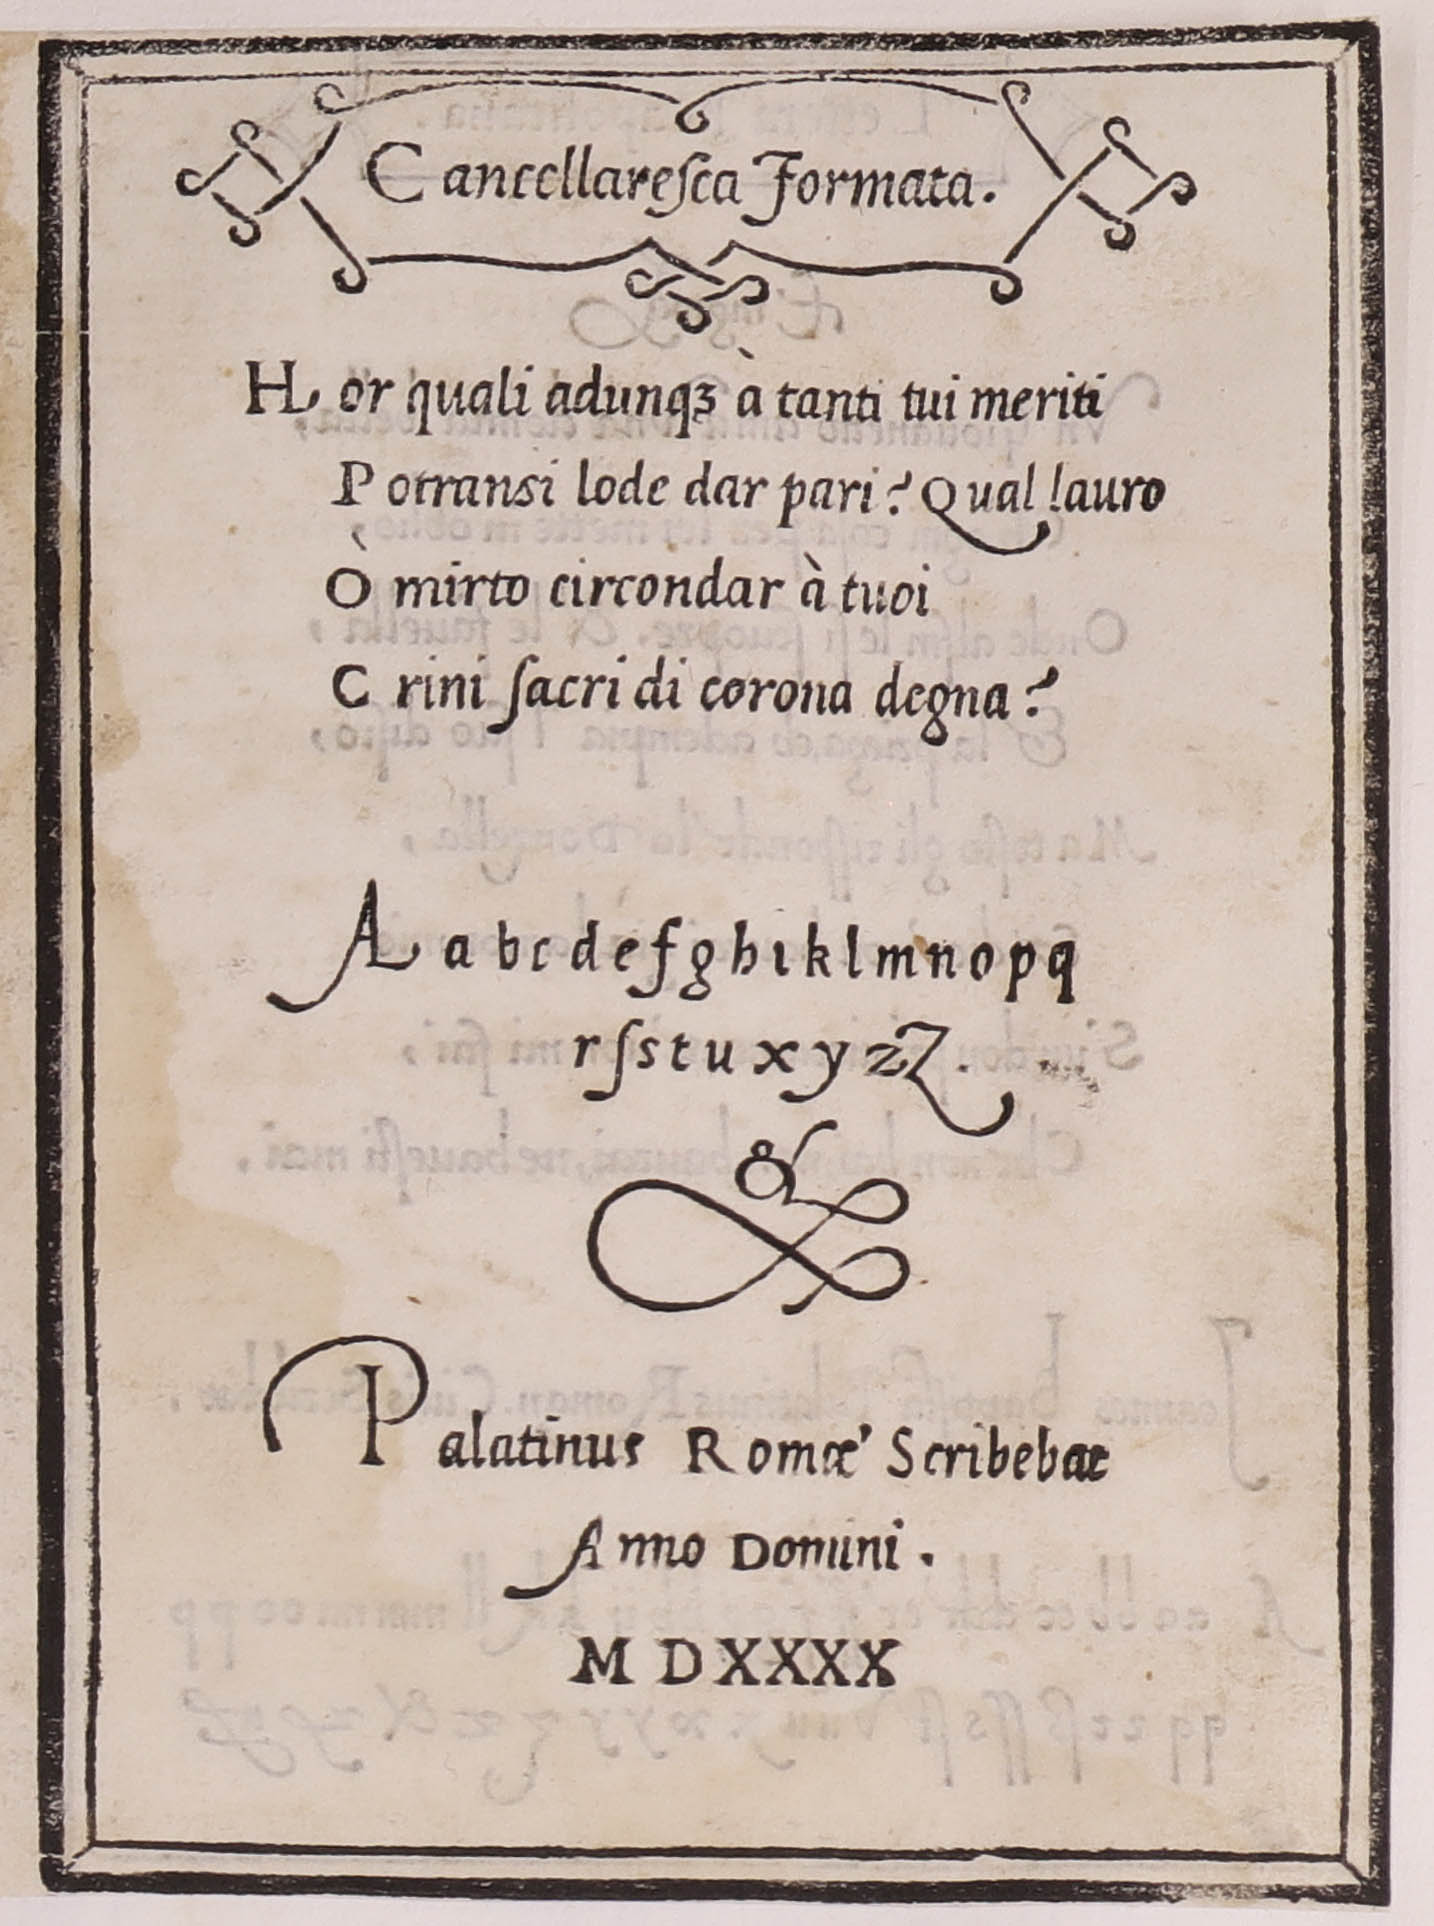 Cancellareſca Formata.
Hor quali adunqꝫ à tanti tui meriti
Potransi lode dar pari? Qual lauro
Ò mirto circondar à tuoi
Crini ſacri di corona degna?
A a b c d e f g h i k l m n o p q
r ſ s t u x y z Z.
&
Palatinus Romæ Scribebat
Anno Domini.
MDXXXX